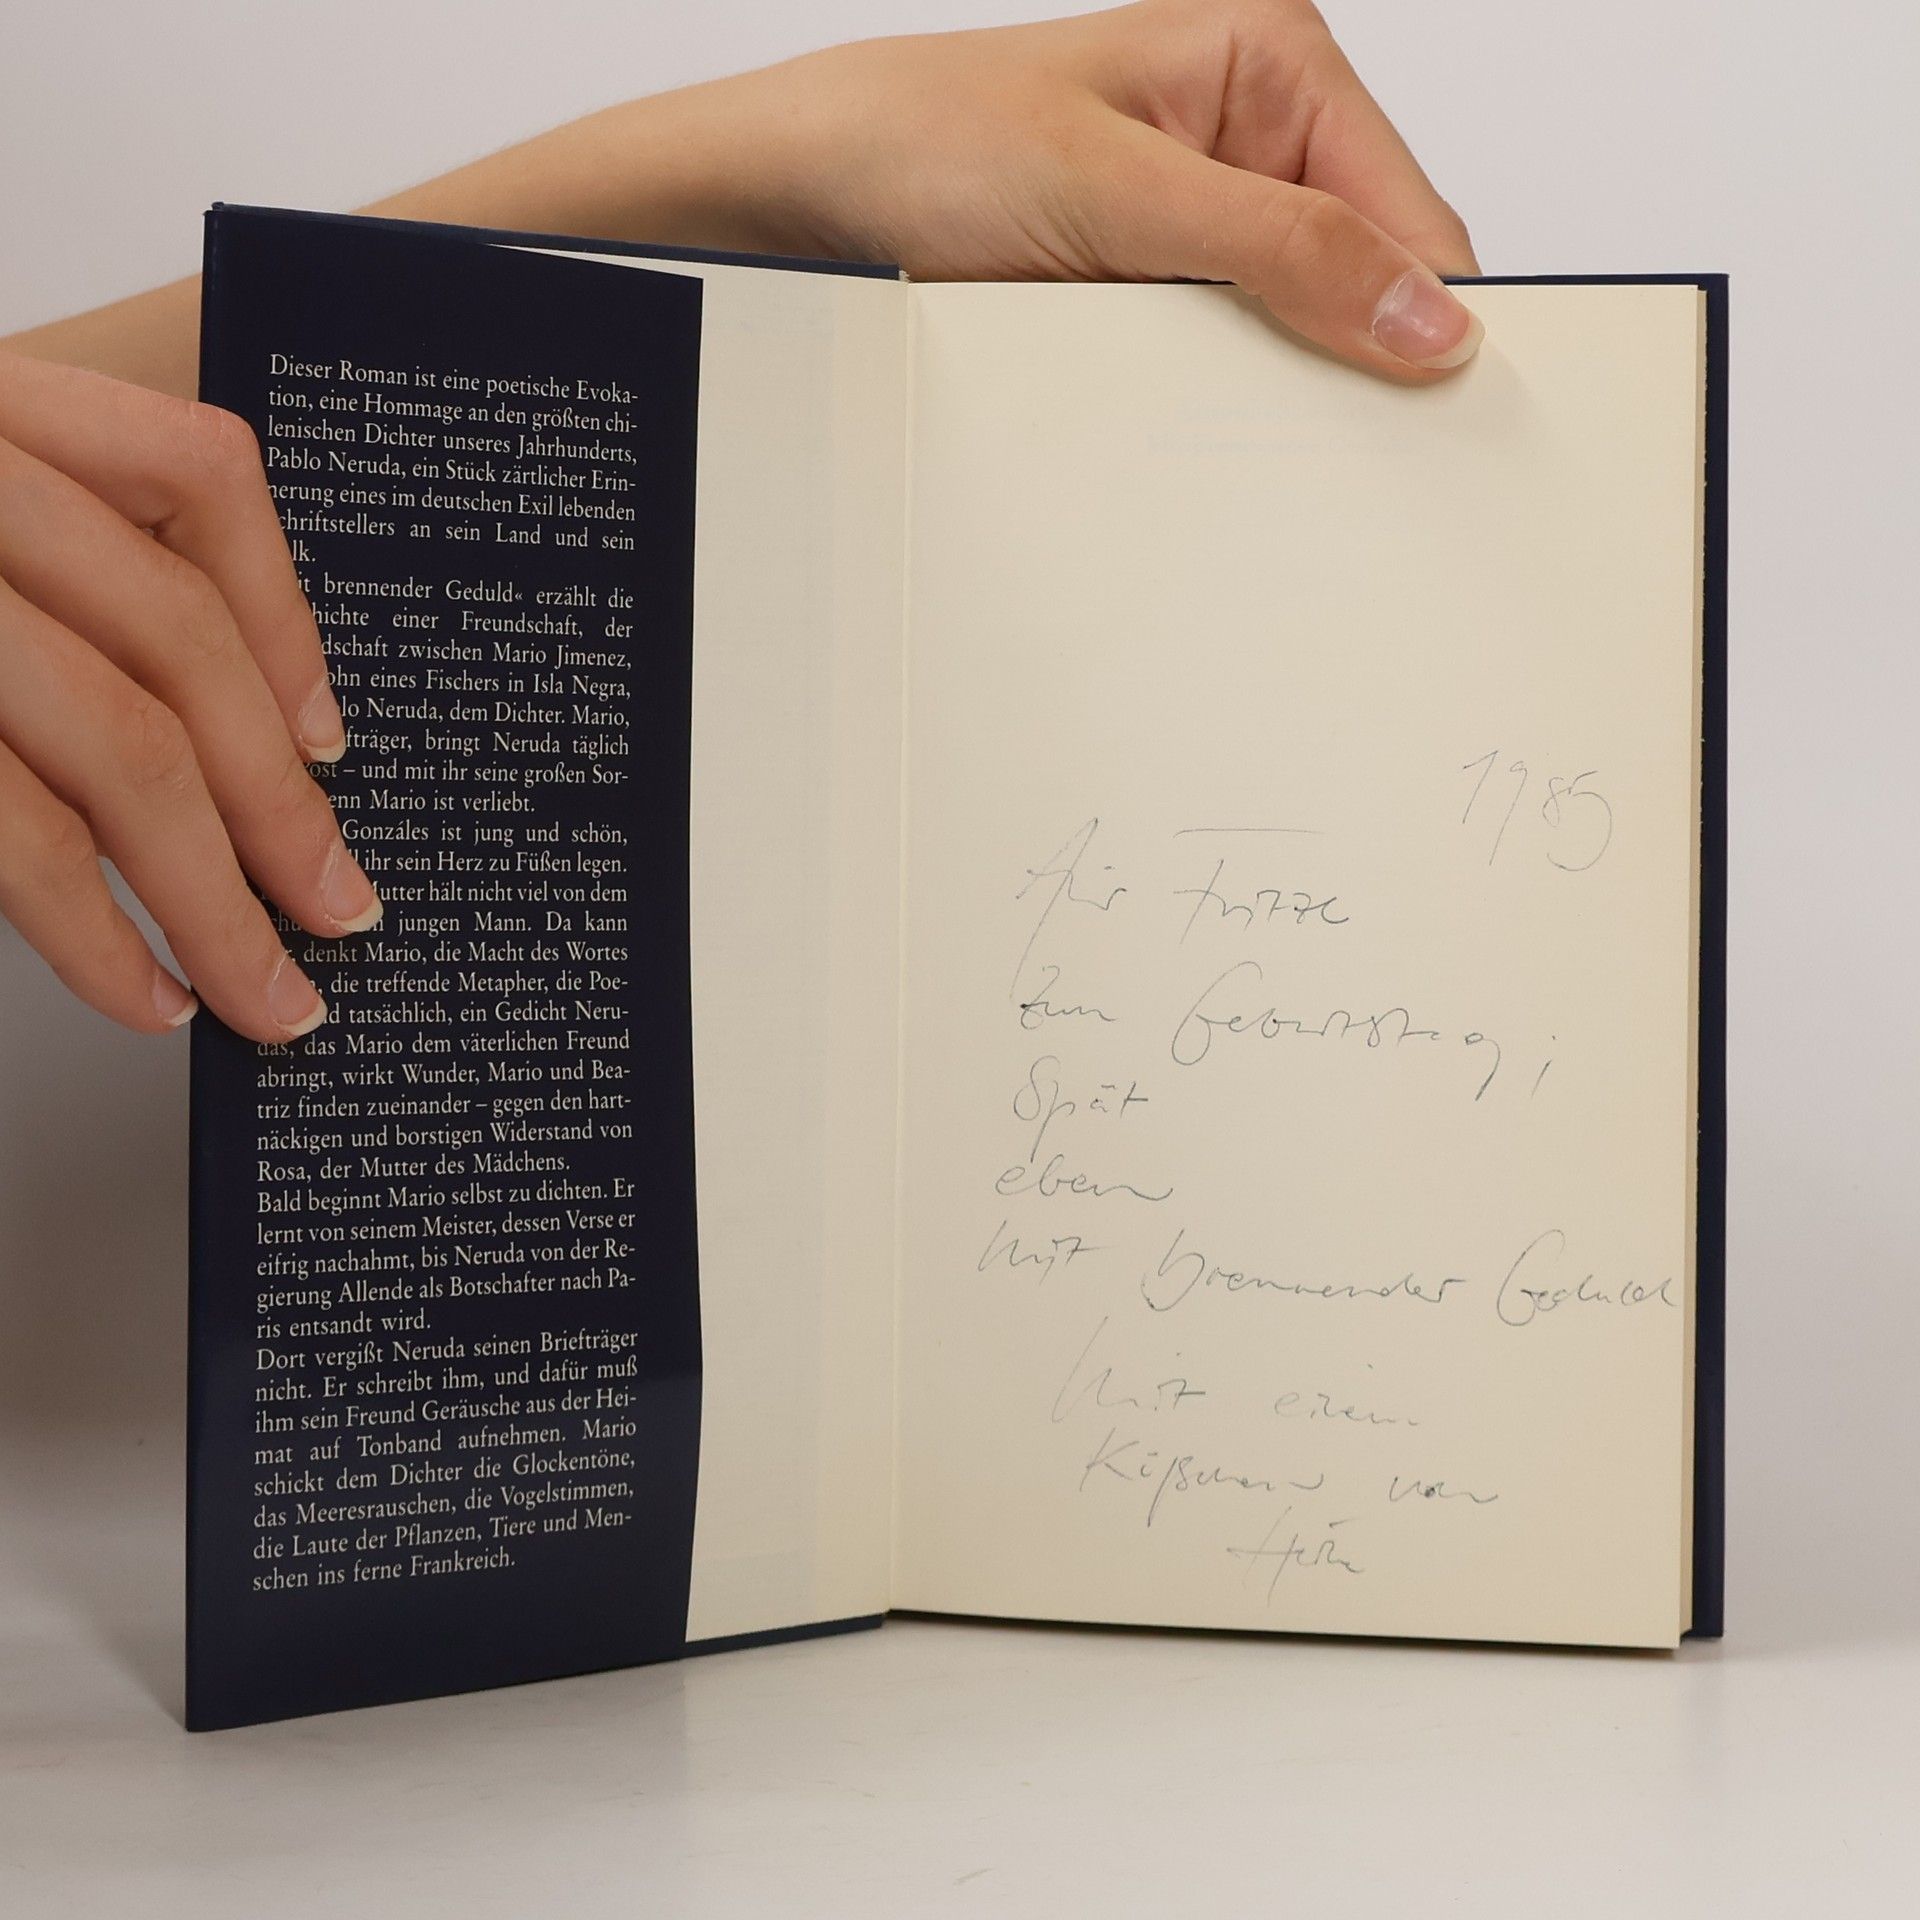 Dieser Roman ist eine poetische Evoka-
tion, eine Hommage an den größten chi-
lenischen Dichter unseres Jahrhunderts,
Pablo Neruda, ein Stück zärtlicher Erin-
nerung eines im deutschen Exil lebenden
chriftstellers an sein Land und sein
lk.
it brennender Geduld« erzählt die
hichte einer Freundschaft, der
dschaft zwischen Mario Jimenez,
ohn eines Fischers in Isla Negra,
lo Neruda, dem Dichter. Mario,
fträger, bringt Neruda täglich
ost – und mit ihr seine großen Sor-
enn Mario ist verliebt.
Gonzáles ist jung und schön,
ihr sein Herz zu Füßen legen.
utter hält nicht viel von dem
jungen Mann. Da kann
denkt Mario, die Macht des Wortes
, die treffende Metapher, die Poe-
d tatsächlich, ein Gedicht Neru-
das, das Mario dem väterlichen Freund
abringt, wirkt Wunder, Mario und Bea-
triz finden zueinander – gegen den hart-
näckigen und borstigen Widerstand von
Rosa, der Mutter des Mädchens.
Bald beginnt Mario selbst zu dichten. Er
lernt von seinem Meister, dessen Verse er
eifrig nachahmt, bis Neruda von der Re-
gierung Allende als Botschafter nach Pa-
ris entsandt wird.
Dort vergißt Neruda seinen Briefträger
nicht. Er schreibt ihm, und dafür muß
ihm sein Freund Geräusche aus der Hei-
mat auf Tonband aufnehmen. Mario
schickt dem Dichter die Glockentöne,
das Meeresrauschen, die Vogelstimmen,
die Laute der Pflanzen, Tiere und Men-
schen ins ferne Frankreich.
1985
für Fritze
zum Geburtstag;
Spät
eben
Mit brennender Geduld
Mit einem
Küßchen von